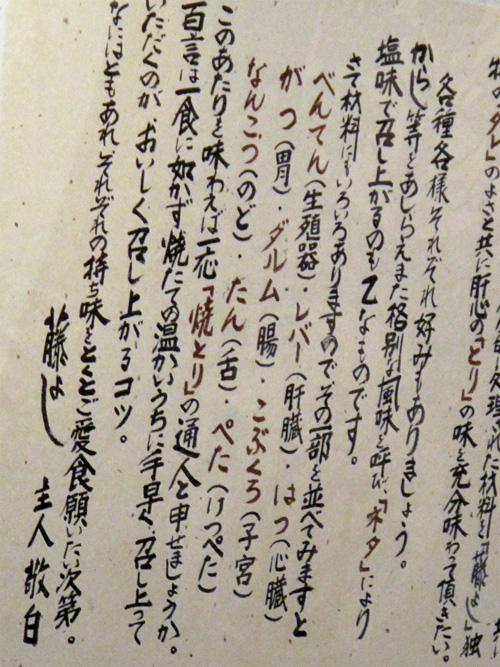 処理された材料を「藤よし」独
特の「タレ」のよさと共に肝心の「とり」の味を充分味わって頂きたい。
各種各様それぞれ好みもありましょう。
からし等をあしらえまた格別な風味を呼び、「ネタ」により
塩味で召し上がるのも乙なものです。
さて材料にもいろいろありますのでその一部を並べてみますと
べんてん(生殖器)・レバー(肝臓)・はつ(心臓)
がつ(胃)・ダルム(腸)・こぶくろ(子宮)
なんこつ(のど)・たん(舌)・ぺた(けつぺた)
このあたりを味わえば一応「焼とり」の通人と申せましょうか。
百言は一食に如かず焼たての温かいうちに手早く召し上って
いただくのが、おいしく召し上がるコツ。
なにはともあれ、それぞれの持ち味をとくとご愛食願いたい次第。
藤よし 主人敬白